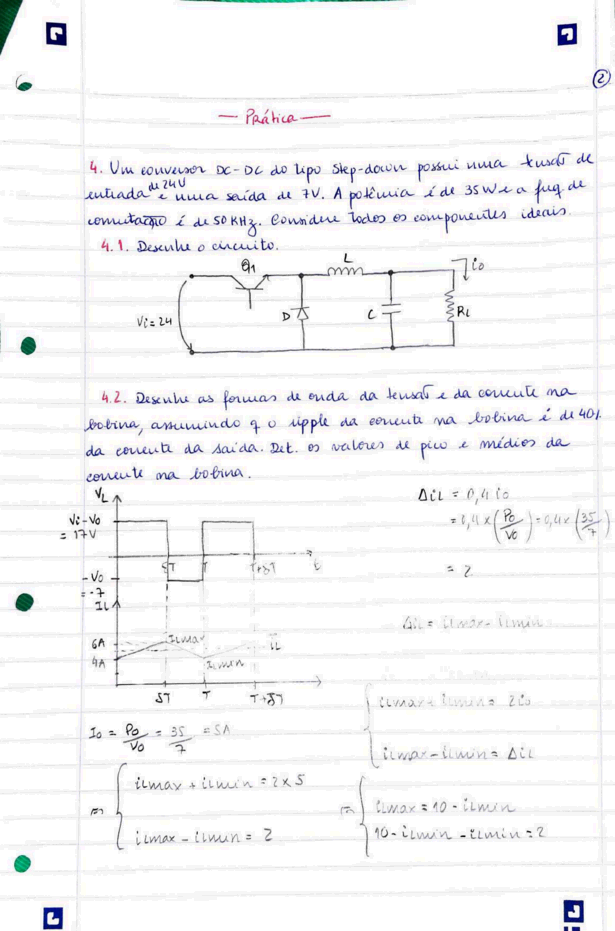 ②
— Prática —
4. Um conversor DC-DC do tipo Step-down possui uma tensão de
entrada de 24V e uma saída de 7V. A potência é de 35W e a freq de
comutação é de 50KHz. Considere todos os componentes ideais.
4.1. Desenhe o circuito.
Q1
L
io
Vi=24
D
C
RL
4.2. Desenhe as formas de onda da tensão e da corrente na
bobina, assumindo q o ripple da corrente na bobina é de 40%
da corrente da saída. Det. os valores de pico e médios da
corrente na bobina.
VL
Vi-Vo
= 17V
δT T T+δT t
-Vo
= -7
IL
6A
4A
iLmax
iLmin
IL
δT T T+δT
ΔiL = 0,4 io
= 0,4 × (Po/Vo) = 0,4 × (35/7)
= 2
ΔiL = iLmáx - iLmin
{ iLmax + iLmin = 2Io
iLmax - iLmin = ΔiL
Io = Po/Vo = 35/7 = 5A
{ iLmax + iLmin = 2×5
iLmax - iLmin = 2
{ iLmax = 10 - iLmin
10 - iLmin - iLmin = 2